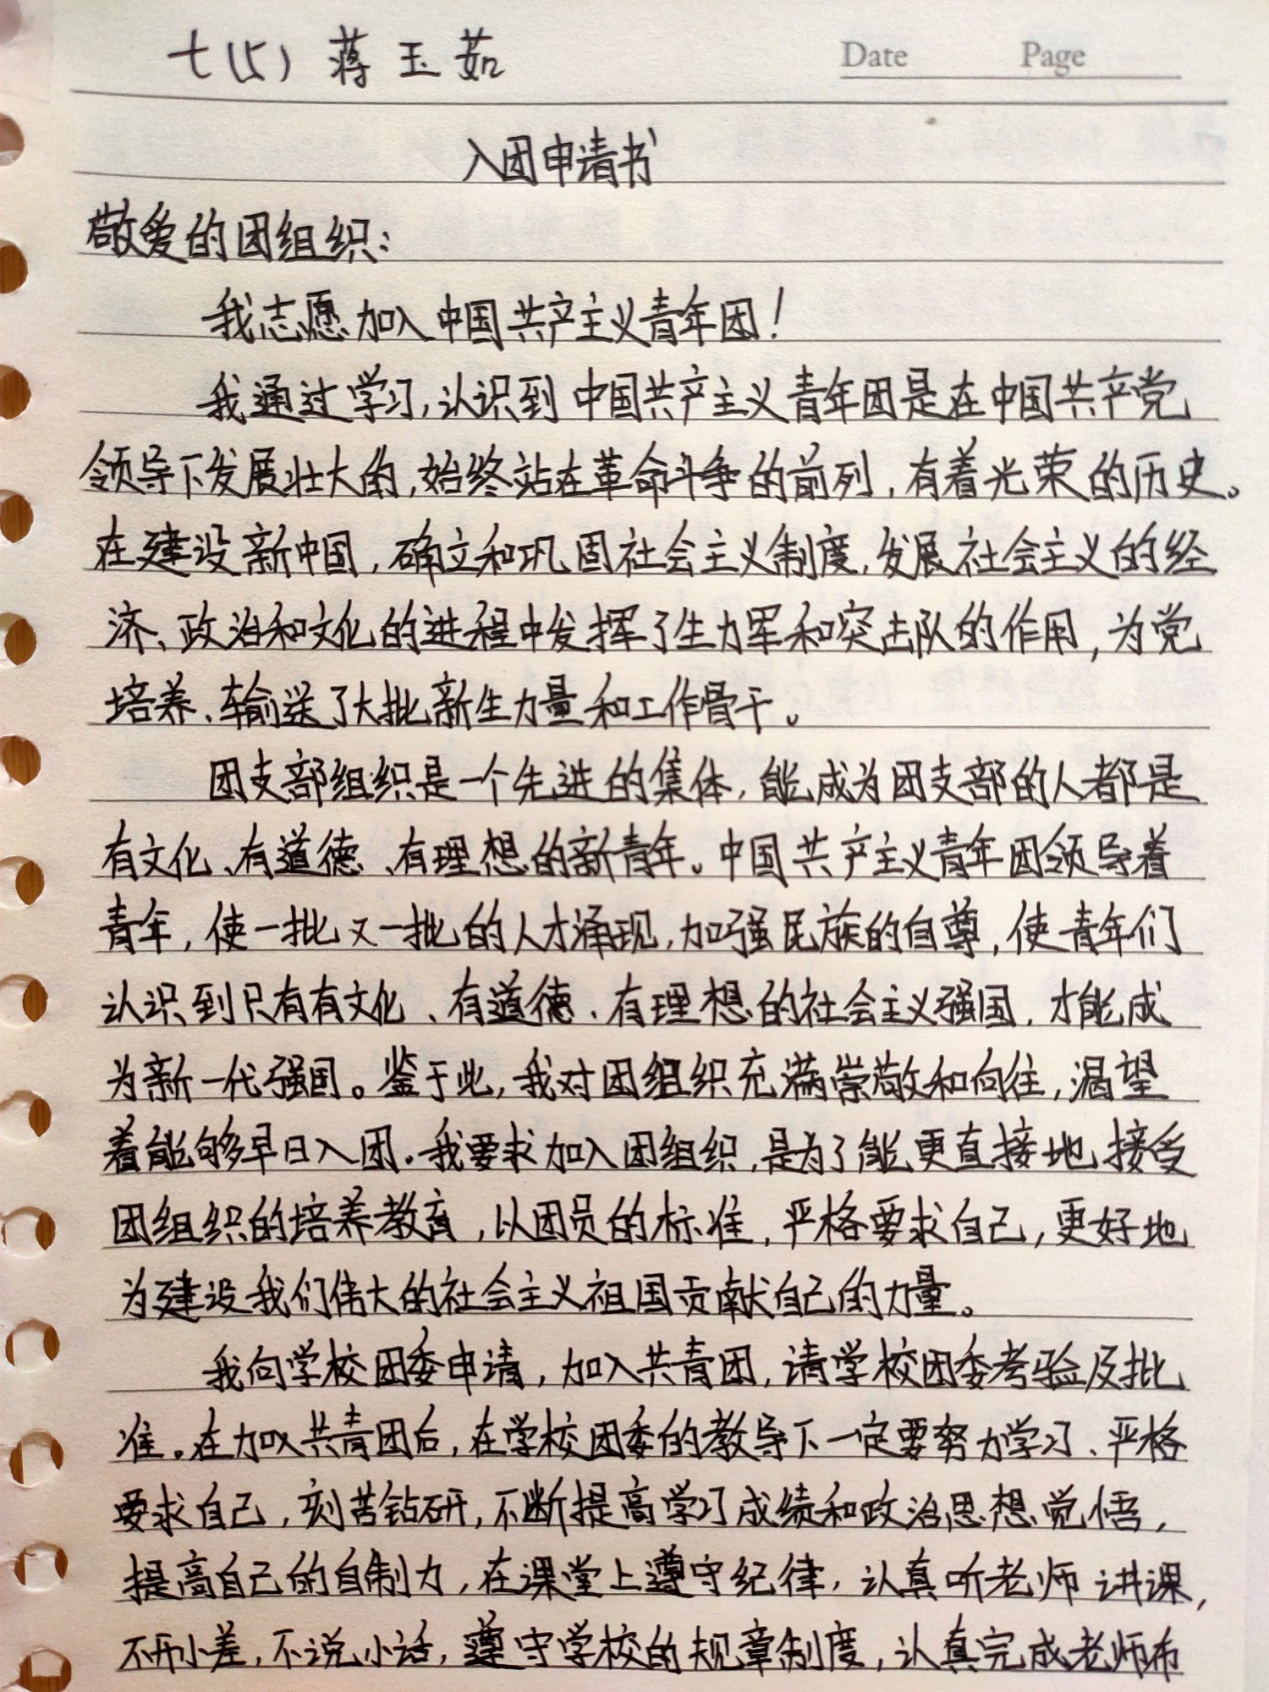 七(5) 蒋玉茹
Date Page
入团申请书
敬爱的团组织:
我志愿加入中国共产主义青年团!
我通过学习,认识到中国共产主义青年团是在中国共产党
领导下发展壮大的,始终站在革命斗争的前列,有着光荣的历史。
在建设新中国,确立和巩固社会主义制度,发展社会主义的经
济、政治和文化的进程中发挥了生力军和突击队的作用,为党
培养、输送了大批新生力量和工作骨干。
团支部组织是一个先进的集体,能成为团支部的人都是
有文化、有道德、有理想的新青年。中国共产主义青年团领导着
青年,使一批又一批的人才涌现,加强民族的自尊,使青年们
认识到只有有文化、有道德、有理想的社会主义强国,才能成
为新一代强国。鉴于此,我对团组织充满崇敬和向往,渴望
着能够早日入团。我要求加入团组织,是为了能更直接地接受
团组织的培养教育,以团员的标准,严格要求自己,更好地
为建设我们伟大的社会主义祖国贡献自己的力量。
我向学校团委申请,加入共青团,请学校团委考验及批
准。在加入共青团后,在学校团委的教导下一定要努力学习、严格
要求自己,刻苦钻研,不断提高学习成绩和政治思想觉悟,
提高自己的自制力,在课堂上遵守纪律,认真听老师讲课,
不开小差,不说小话,遵守学校的规章制度,认真完成老师布